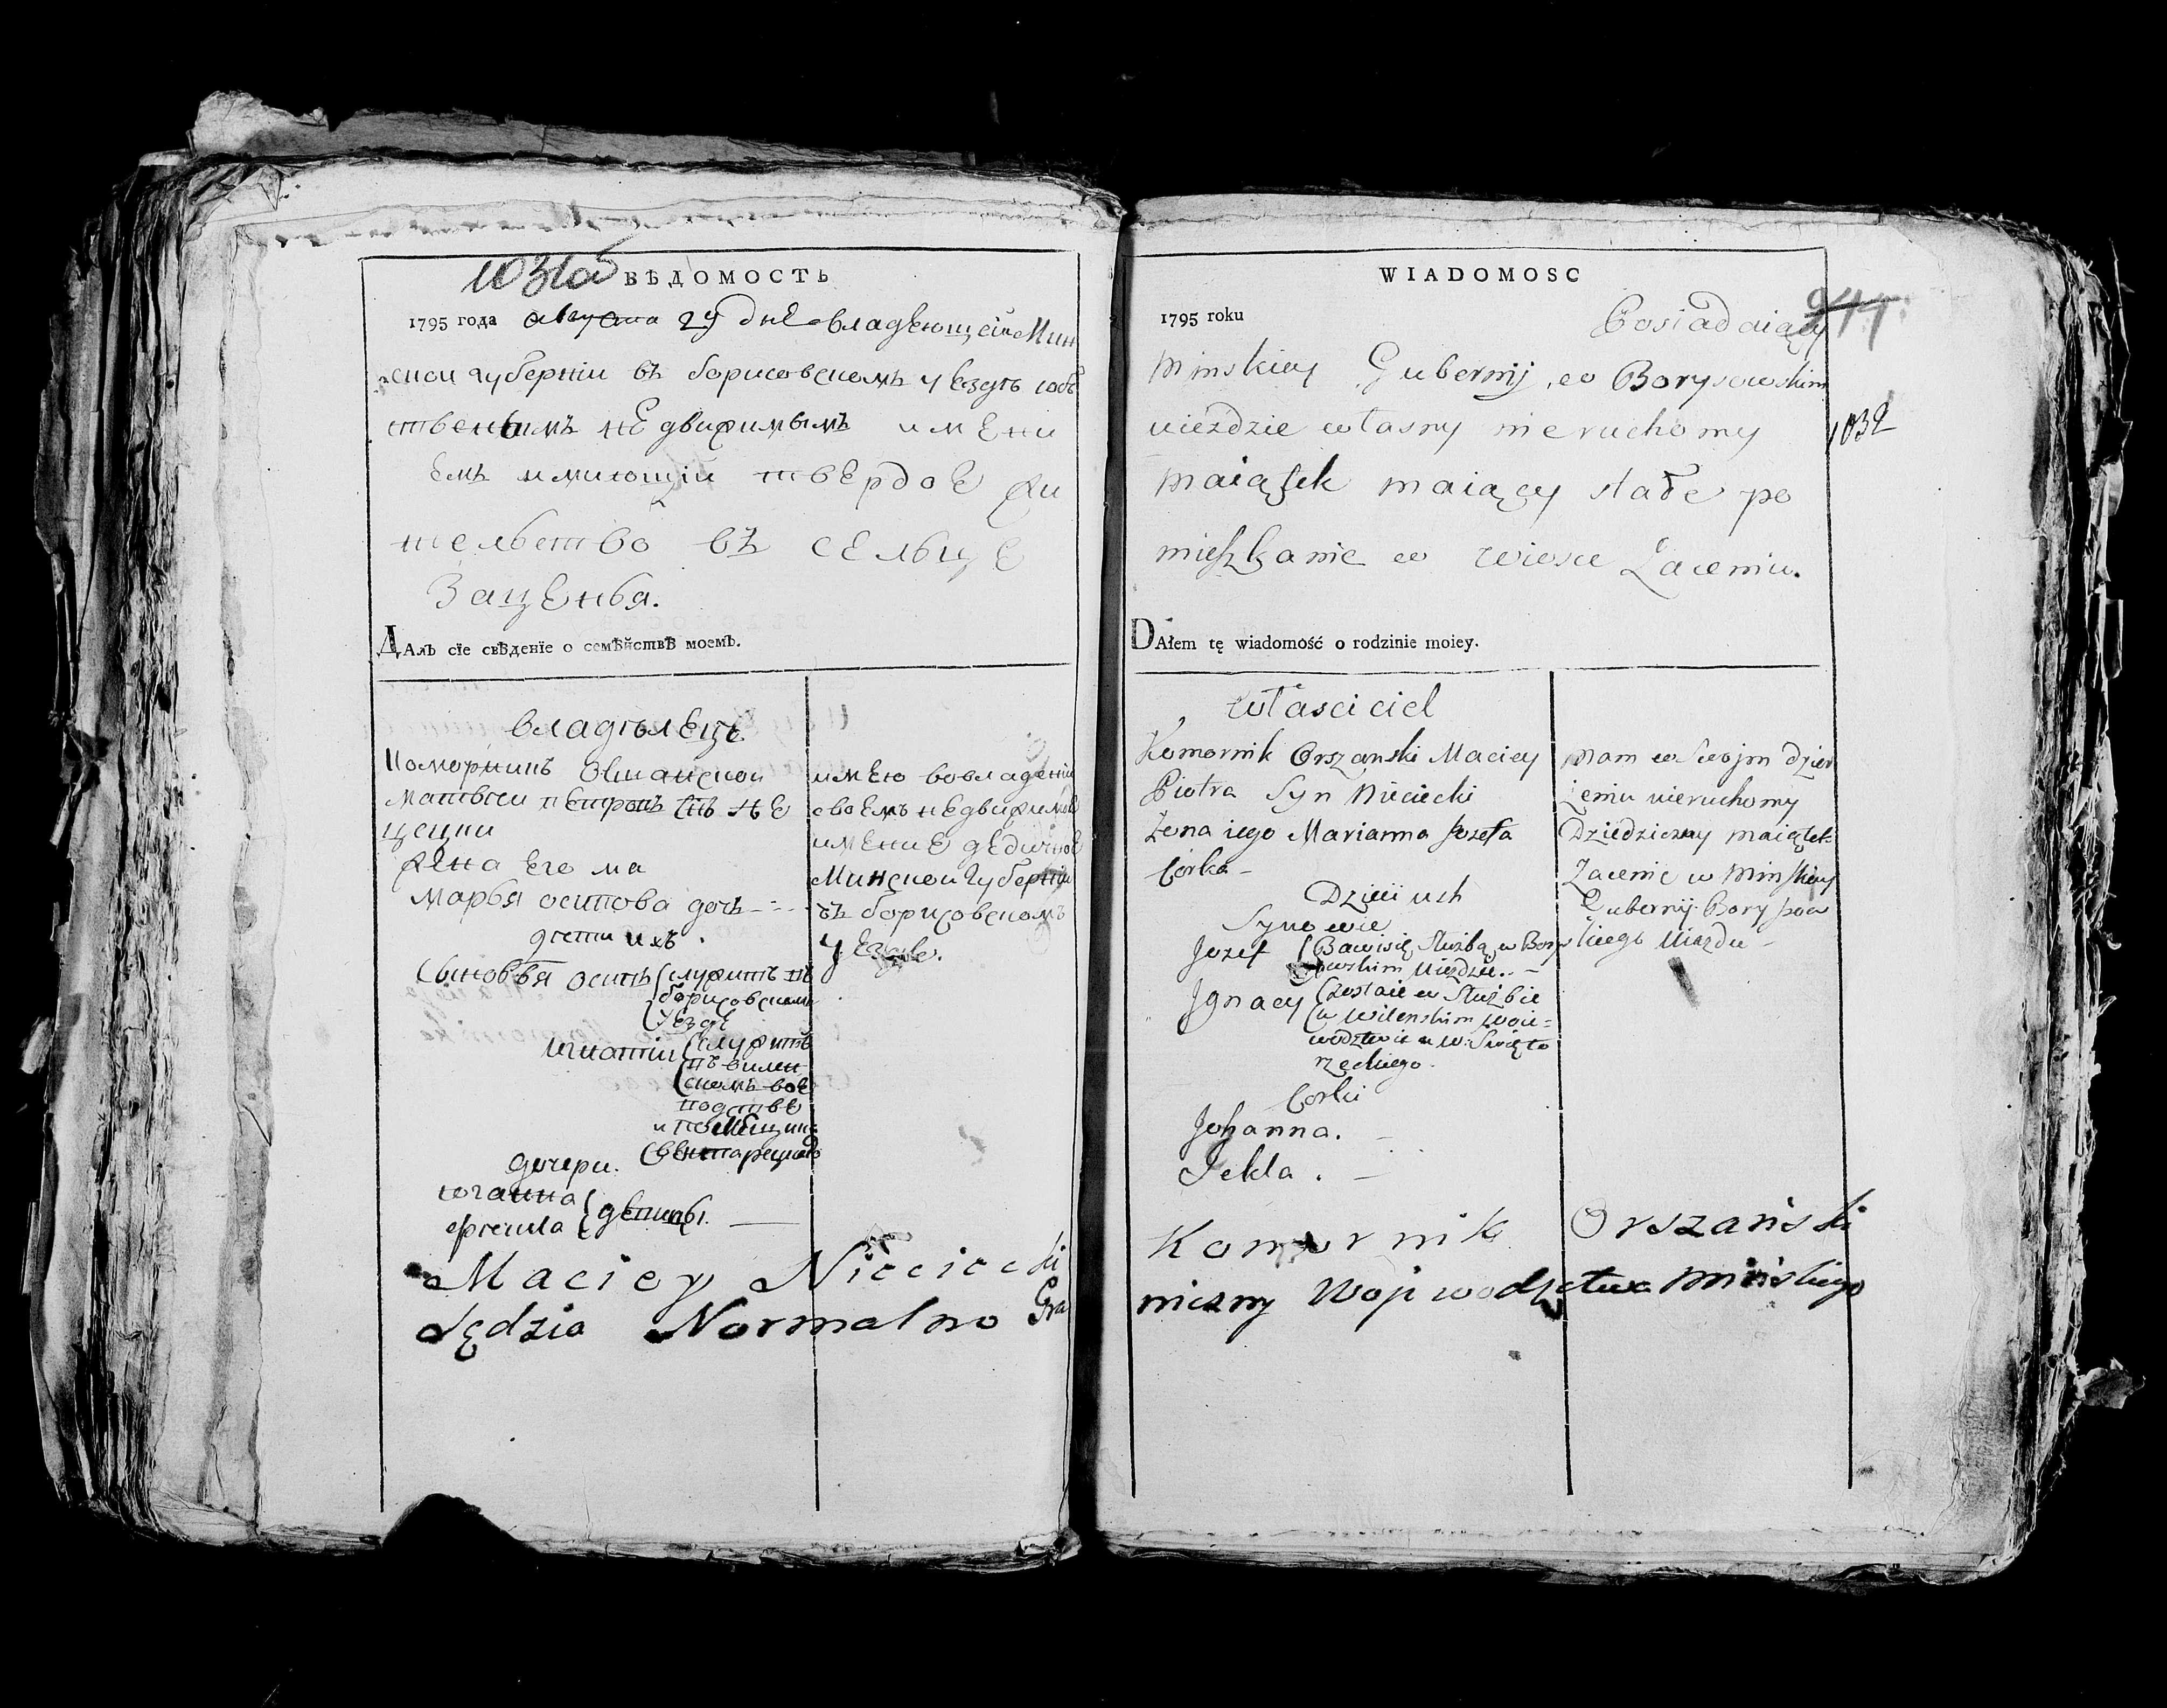 1031об
ВѢДОМОСТЬ
1795 года августа 29 дне владеющей Мин
ской губернiи въ борисовскомъ уездѣ собс
твенымъ недвижимымъ имени
емъ имиющiй твердое жи
тельство въ сельце
Заценья.
Далъ сїе свѣденїе о семѣйствѣ моемъ.
владѣлецъ.
Коморникъ Оршанской
Матвеи Петровъ снъ Не
цецки
жена его ма
марья осипова дочь
дети ихъ.
Сыновья осипъ служитъ въ
борисовскомъ
уезде
игнатiи служитъ
въ вилен
скомъ вое
водстве
дочери.
юганна
фекила
имею вовладенiи
своемъ недвижимое
имение дедичное
Минской губернiи
въ борисовскомъ
уезде.
Maciey Nieciecki
Sędzia Normalno Gra
WIADOMOSC
944
1795 roku Posiadaiący
Minskiey Gubernij, w Borysowskim
uieździe własny nieruchomy
1032
Maiątek maiący stałe po
mieszkanie w wiosce Zaceniu.
DAłem tę wiadomość o rodzinie moiey.
właściciel
Komornik Orszanski Maciey
Piotra Syn Nieciecki
Zona iego Marianna Jozefa
Corka -
Dzieci ich
Synowie
Jozef Bawi się służbą w Borys
owskim Uieździe. -
Jgnacy Zostaie w Służbie
w Wilenskim Woie=
wodztwie u W: Święto
rzeckiego
Corki
Johanna. -
Tekla. -
Mam w Swojm dzier
żeniu nieruchomy
Dziedziczny maiątek
Zacenie w Minskiey
Gubernij Borysow
skiego Uiazdu -
Komornik Orszański
niczny Wojewodztwa Mińskiego